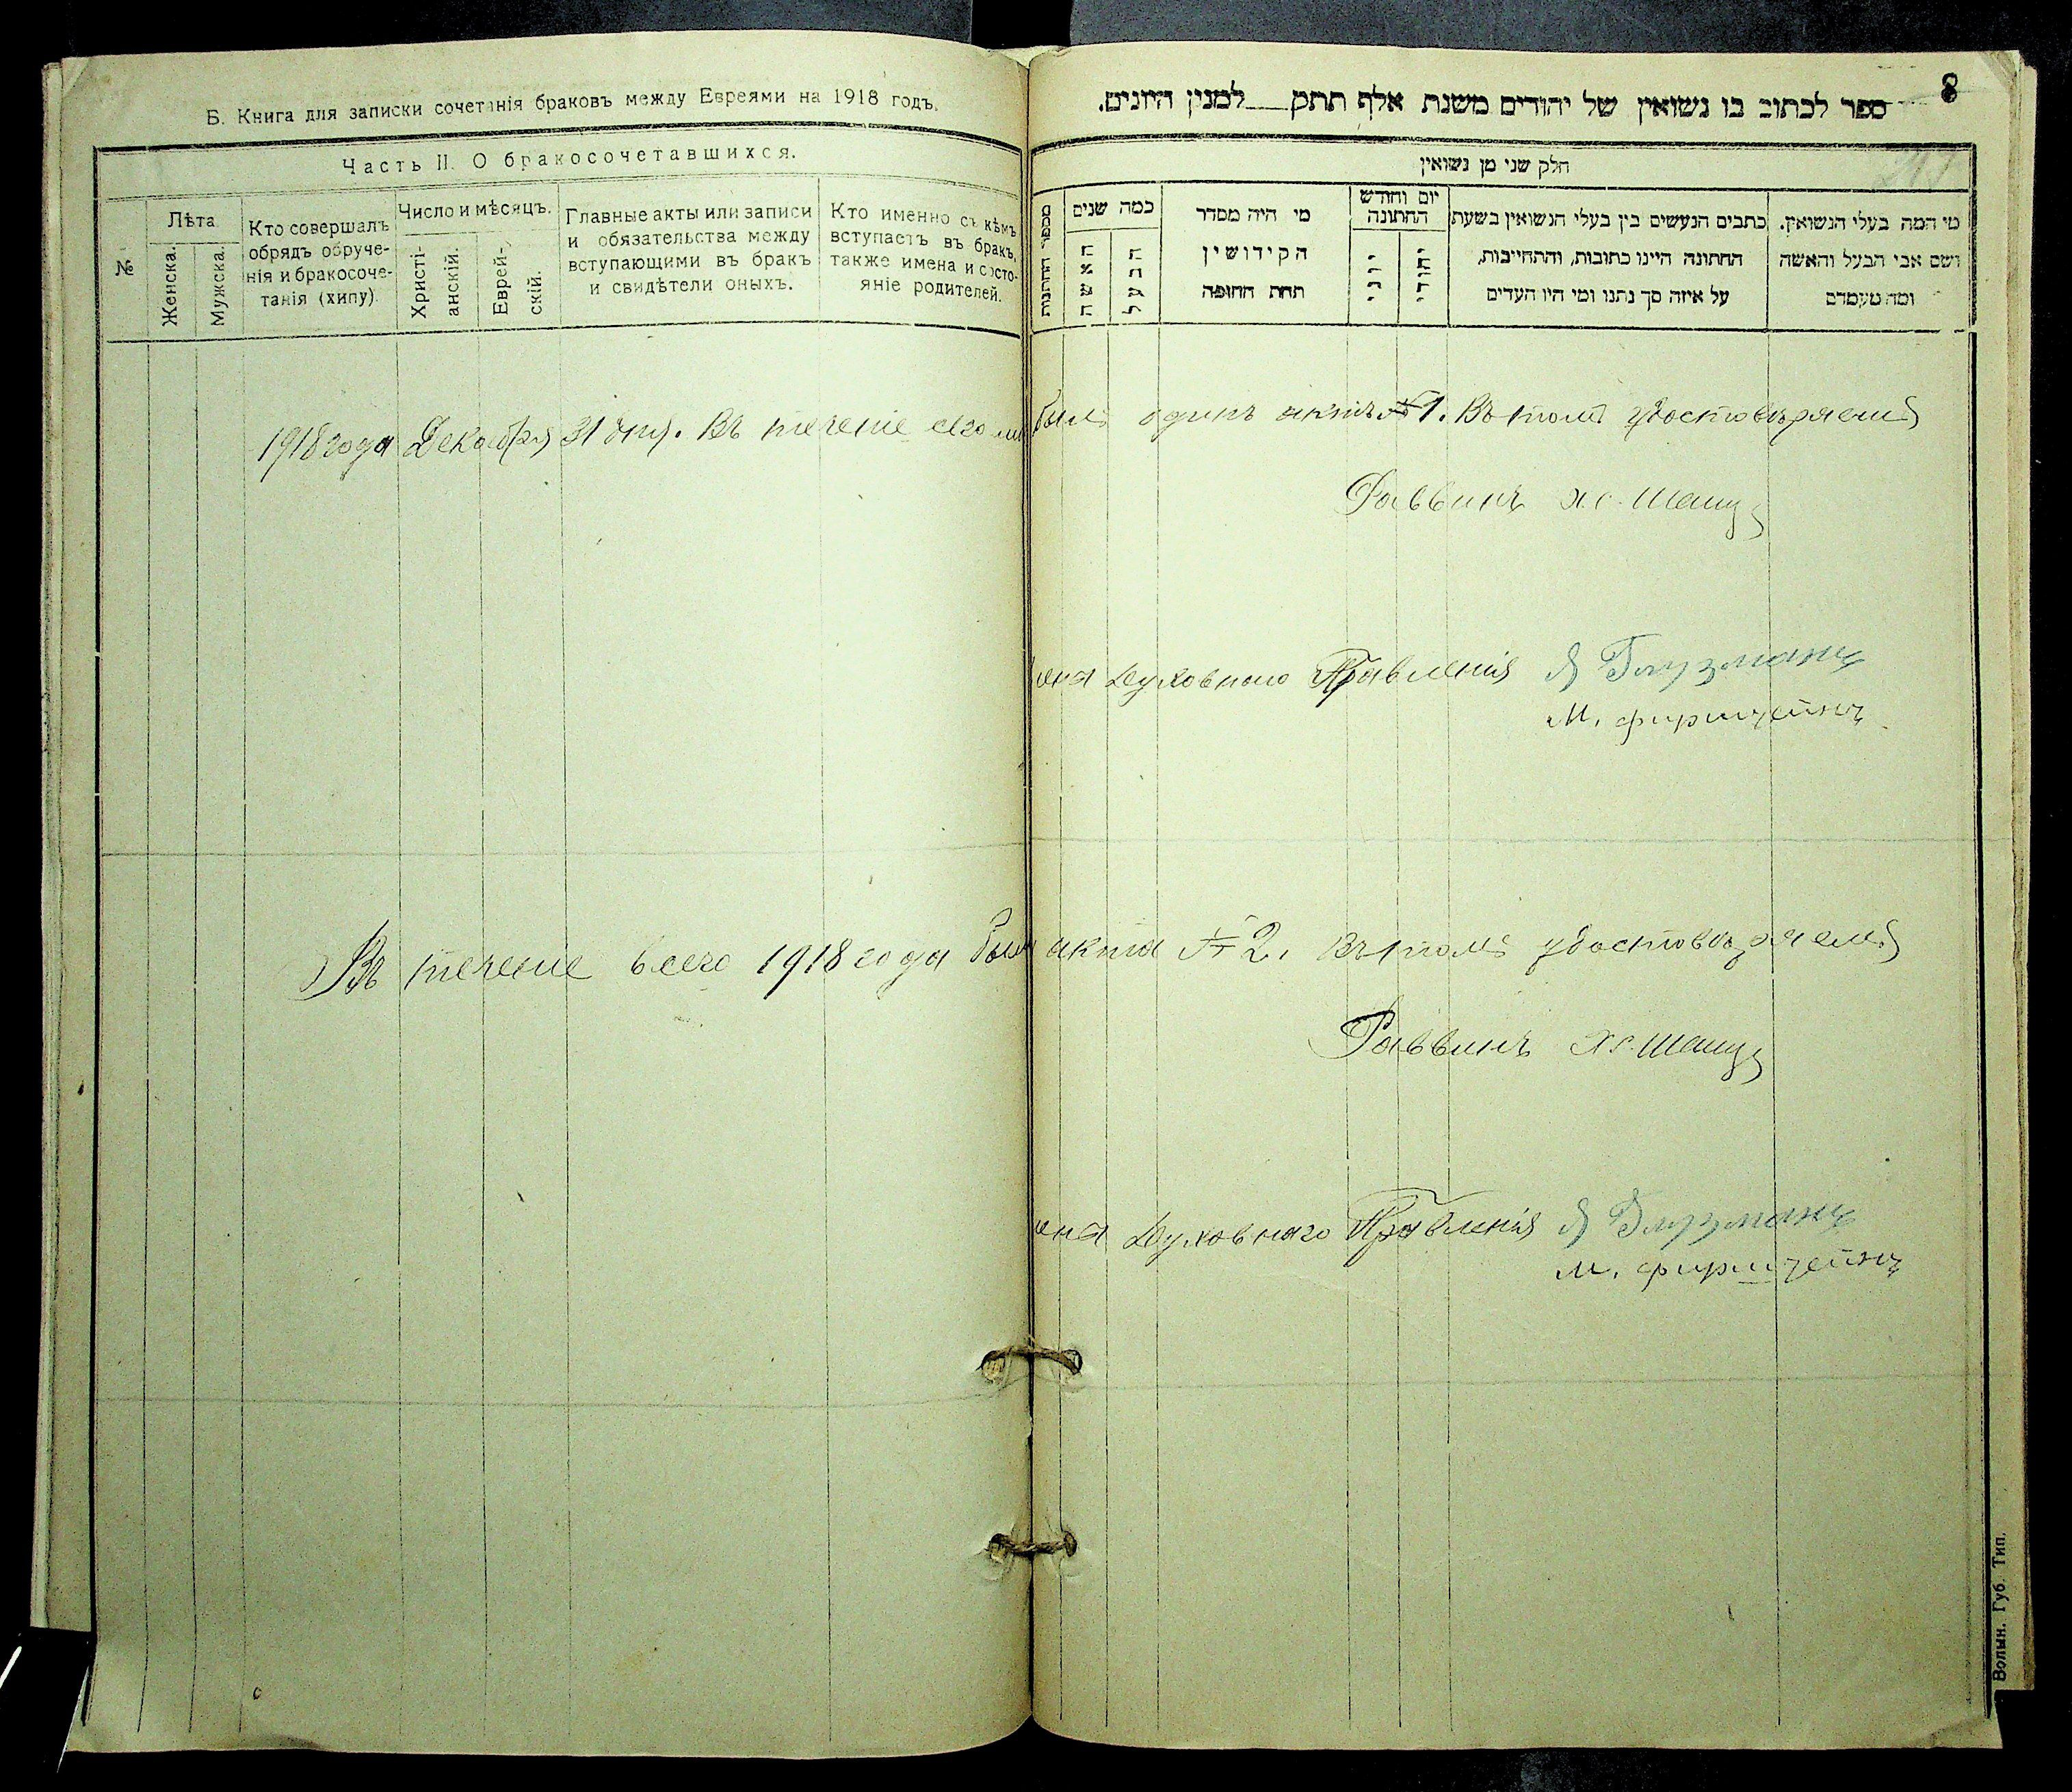 Б. Книга для записки сочетанія браковъ между Евреями на 1918 годъ.
Часть II. О бракосочетавшихся.
№
Лѣта
Женска.
Мужска.
Кто совершалъ
обрядъ обруче-
нія и бракосоче-
танія (хипу).
Число и мѣсяцъ.
Христі-
анскій.
Еврей-
скій.
Главные акты или записи
и обязательства между
вступающими въ бракъ
и свидѣтели оныхъ.
Кто именно съ кѣмъ
вступаетъ въ бракъ,
также имена и состо-
яніе родителей.
8
ספר לכתוב בו נשואין של יהודים משנת אלף תתק למנין היונים.
חלק שני מן נשואין
מספר החתונות
כמה שנים
האשה
הבעל
מי היה מסדר
הקידושין
תחת החופה
יום וחודש
החתונה
יוני
יהודי
כתבים הנעשים בין בעלי הנשואין בשעת
החתונה היינו כתובות, והתחייבות,
על איזה סך נתנו ומי היו העדים
מי המה בעלי הנשואין.
ושם אבי הבעל והאשה
ומה מעמדם
1918 года Декабря 31 дня. Въ теченіе сего былъ одинъ актъ № 1. Въ томъ удостовѣряемъ
Раввинъ
Духовнаго Правленія Я Глузманъ
М. Фирштейнъ
Въ теченіе всего 1918 года было акта № 2. Въ томъ удостовѣряемъ
Раввинъ
Духовнаго Правленія Я Глузманъ
М. Фирштейнъ
Волын. Губ. Тип.